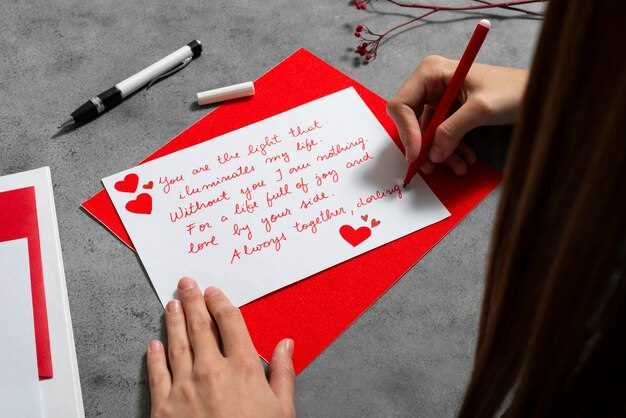 You are the light that
illuminates my life.
Without you I am nothing
For a life full of joy and
love by your side.
Always together, darling